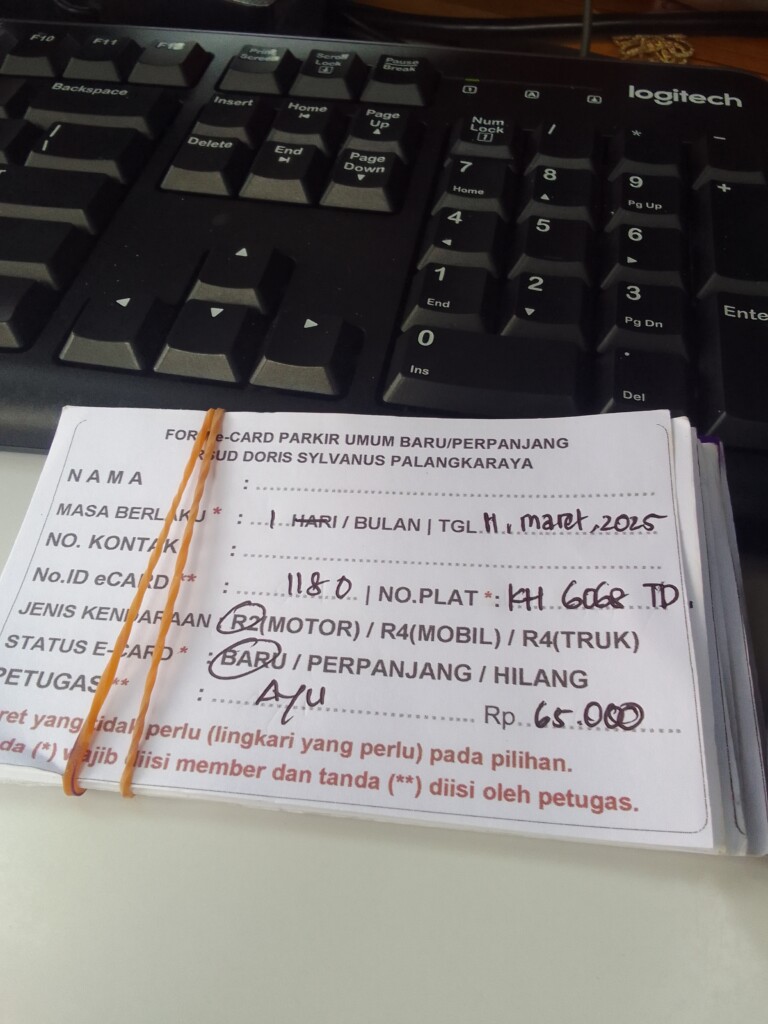 F10 F11
Print Screen Scroll Lock Pause Break
logitech
Backspace Insert Home Page Up Num Lock / * -
Delete End Page Down 7 Home 8 9 Pg Up +
4 5 6
1 End 2 3 Pg Dn Enter
0 Ins . Del
e-CARD PARKIR UMUM BARU/PERPANJANG
RSUD DORIS SYLVANUS PALANGKARAYA
NAMA :
MASA BERLAKU * : 1 HARI / BULAN | TGL 11, maret, 2025
NO. KONTAK :
No.ID eCARD ** : 1180 | NO.PLAT *: KH 6068 TD.
JENIS KENDARAAN R2(MOTOR) / R4(MOBIL) / R4(TRUK)
STATUS E-CARD * : BARU / PERPANJANG / HILANG
PETUGAS ** : Ayu Rp 65.000
ret yang tidak perlu (lingkari yang perlu) pada pilihan.
da (*) wajib diisi member dan tanda (**) diisi oleh petugas.